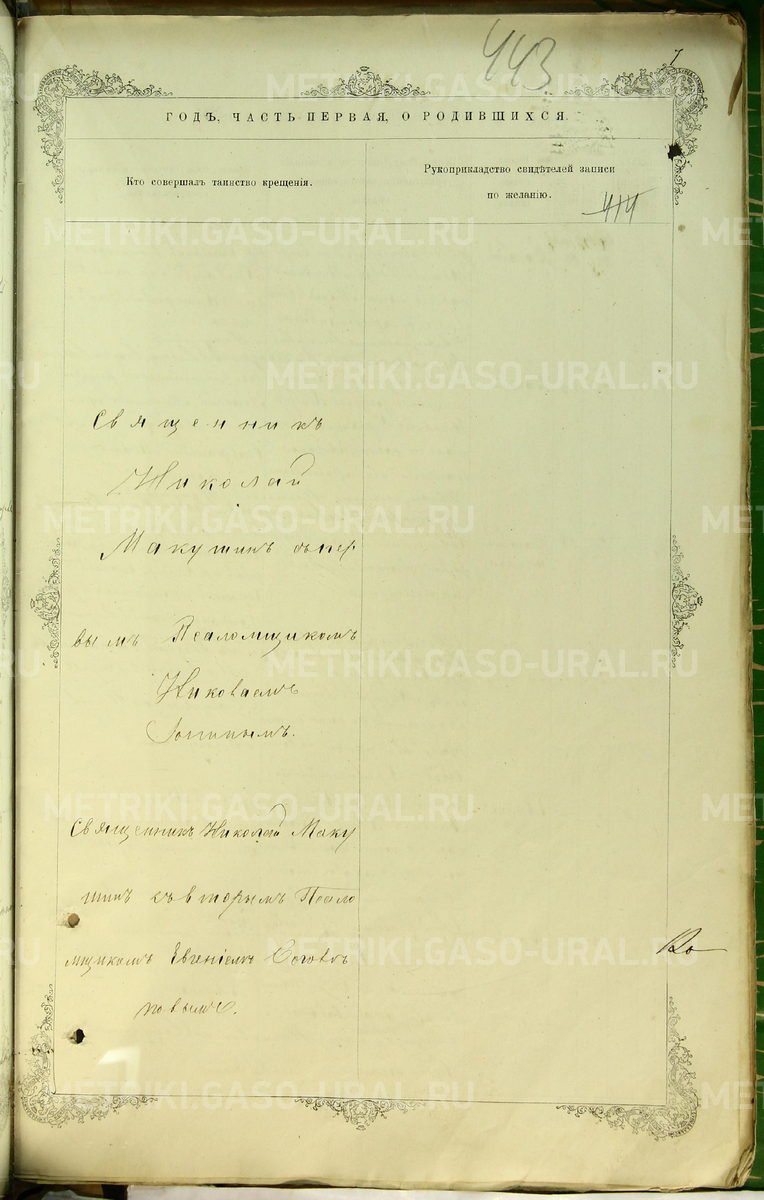 443
7
ГОДЪ, ЧАСТЬ ПЕРВАЯ, О РОДИВШИХСЯ.
Кто совершалъ таинство крещенія.
Рукоприкладство свидѣтелей записи
по желанію.
414
Священникъ
Николай
Макушинъ съ пер
вымъ Псаломщикомъ
Николаемъ
Священникъ Николай Маку
шинъ съ вторымъ Псало
мщикомъ Евгеніемъ
METRIKI.GASO-URAL.RU